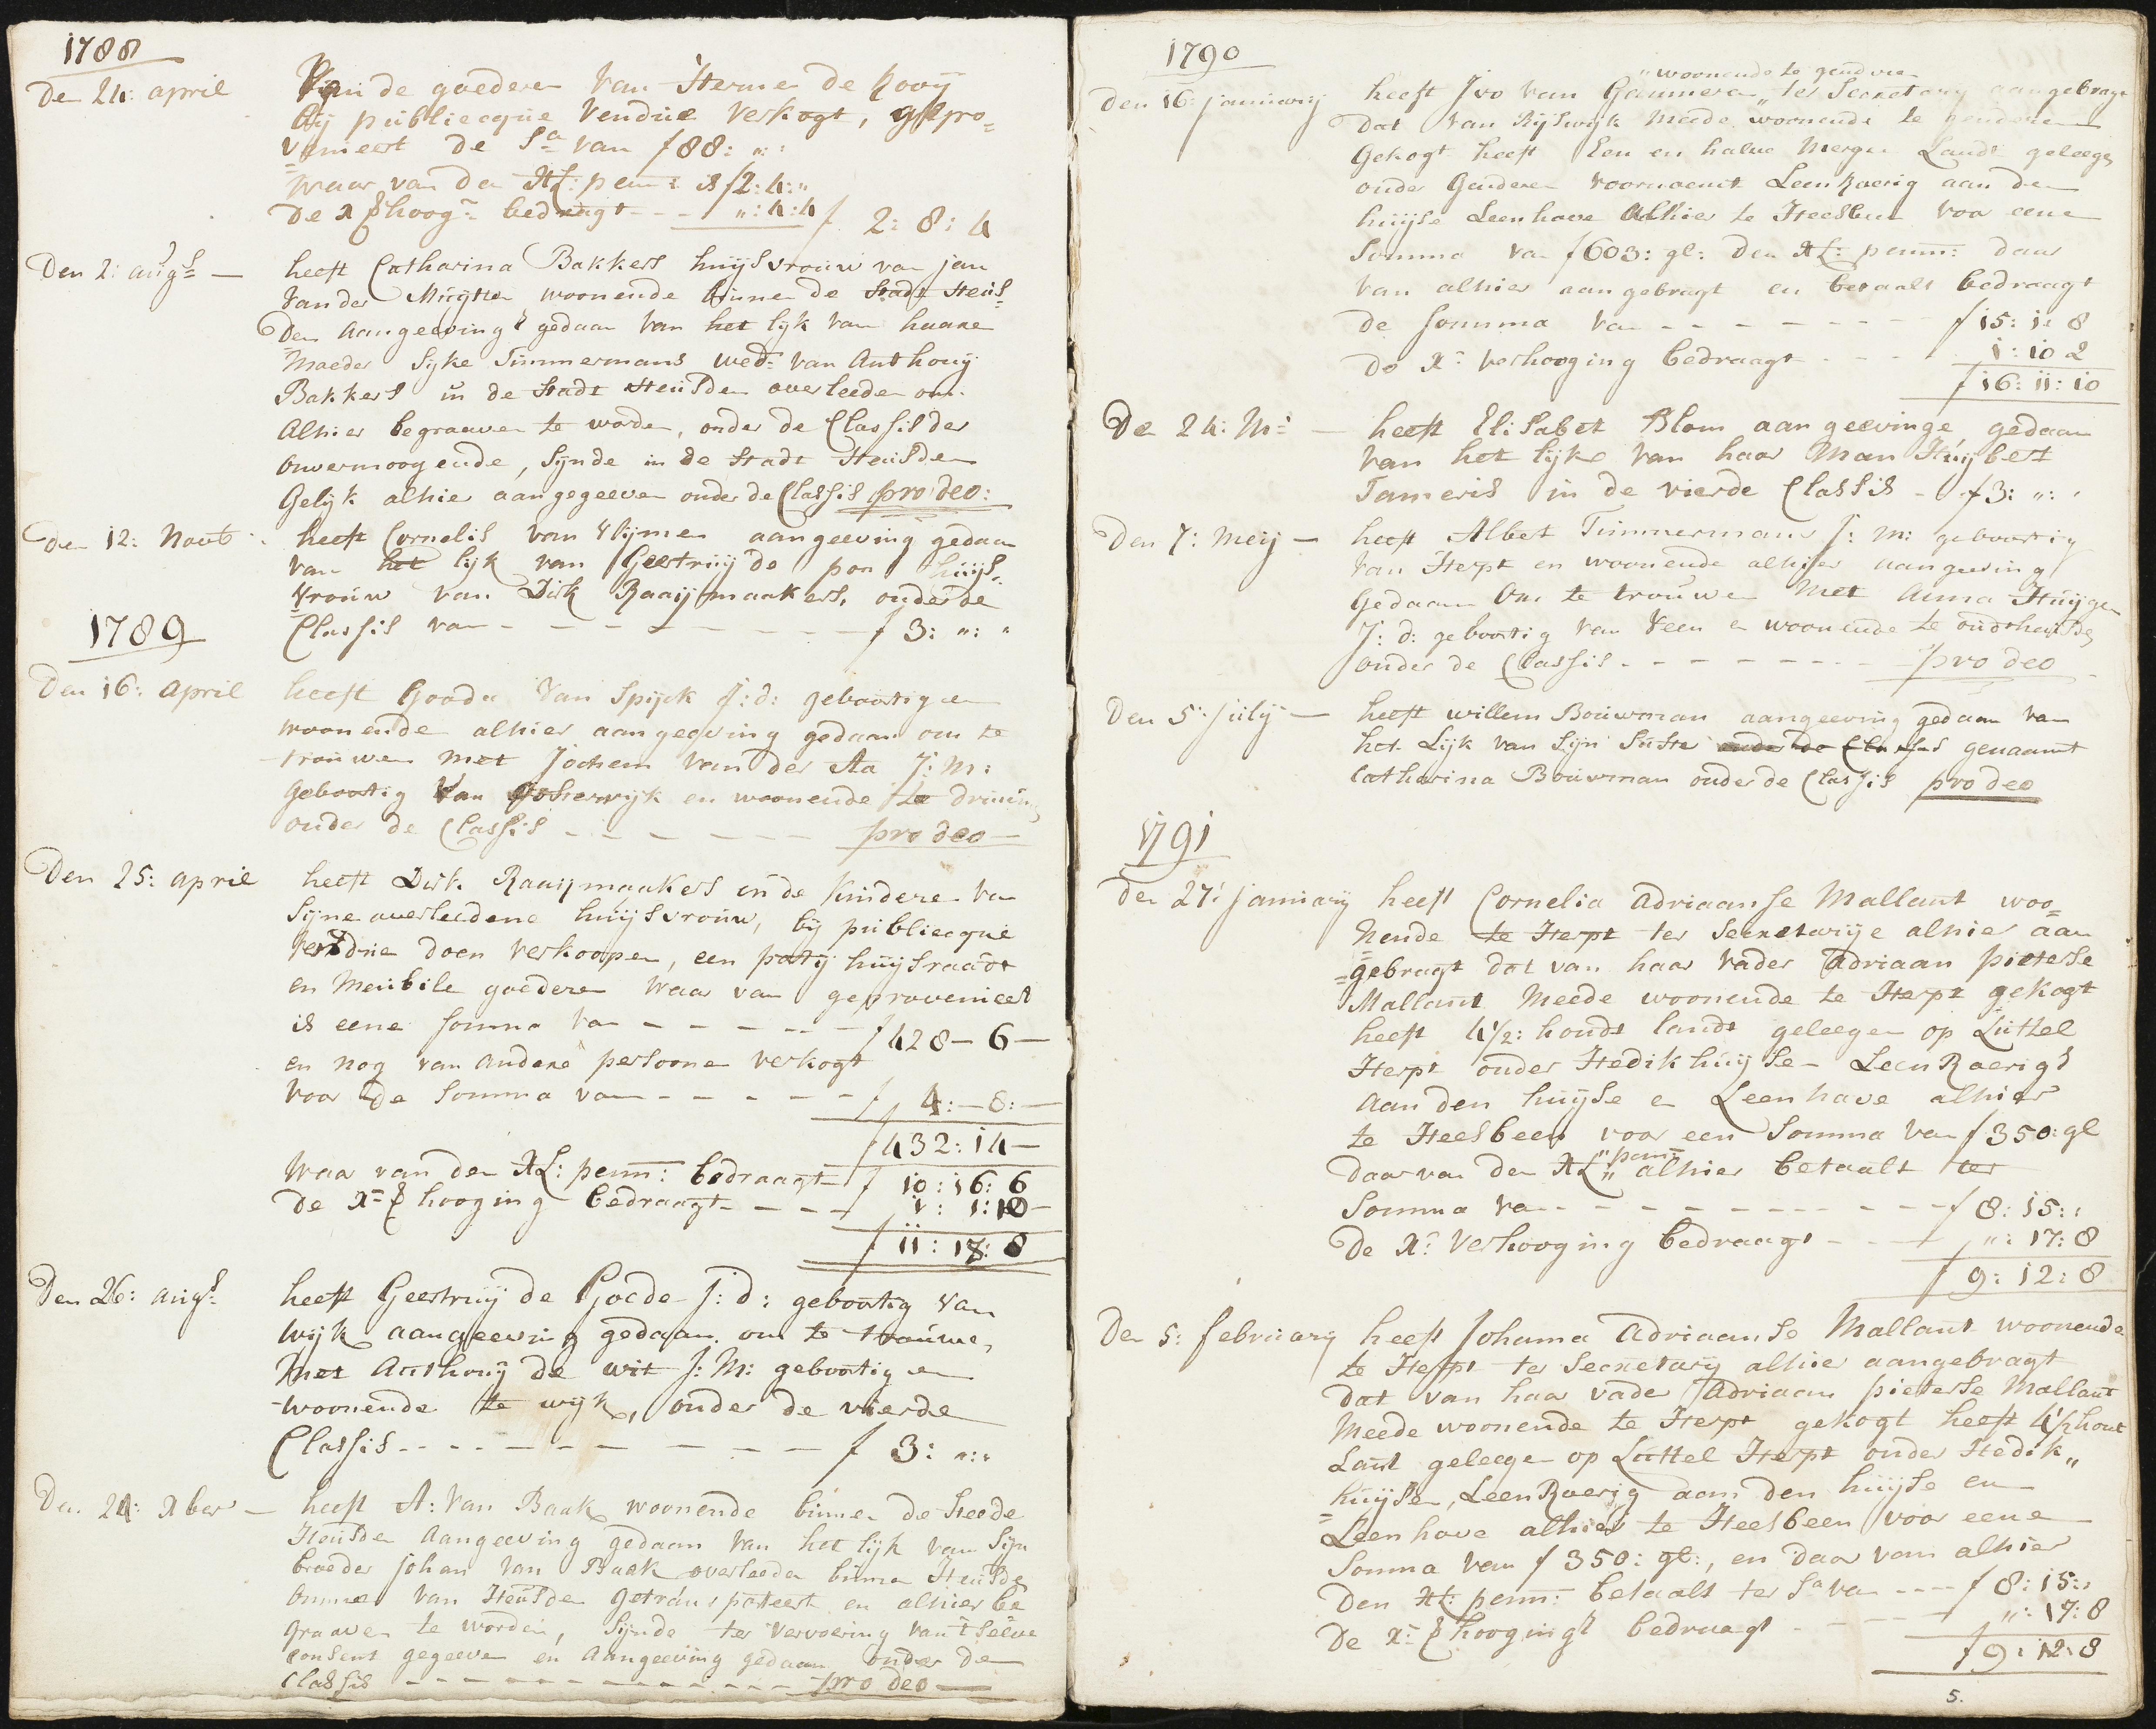 1788
Den 24: april Van de goederen van Herme de Kooij
bij publiecque Vendue verkogt, gepro=
venieert de Sa van f 88: ,,: ,
waar van den XL: penn: is f 2: 4: ,,
de X hoog: bedragt - - - ,,: 4: 4 f 2: 8: 4
Den 2: augs — heeft Catharina Bakkers huijsvrouw van jan
vander Mugter woonende binnen de Stadt Heus=
Den aangeeving gedaan van het lijk van haare
Moeder Sijke Timmermans wed: van Anthonij
Bakkers in de Stadt Heusden overleeden om
Alhier begraaven te worden, onder de Classis der
onvermoogende, Sijnde in de Stadt Heusden
Gelijk alhier aangegeeven onder de Classis pro deo:
Den 12: Novb: heeft Cornelis van Vlijmen aangeeving gedaan
van het lijk van Geertruij de huijs=
vrouw van Dirk Raaijmaakers, onder de
Classis van - - - - - - - f 3: ,,: ,,
1789
Den 16: april heeft van Spijck J: d: geboortig en
woonende alhier aangeeving gedaan om te
trouwen met Jochem van der Aa J: M:
Geboortig van Oosterwijk en woonende te drunen
onder de Classis - - - - - - pro deo —
Den 25: april heeft Dirk Raaijmaakers en de kindere van
Sijne overleedene huijsvrouw, bij publiecque
Vendue doen verkoopen, een partij huijsraadt
en Meubile goederen waar van geprovenieert
is eene somma van - - - - - f 428 — 6 —
en nog van andere persoonen verkogt
voor de Somma van - - - - - f 4: — 8: —
f 432: 14 —
Waar van den XL: penn: bedraagt f 10: 16: 6
De X= hooging bedraagt - - - 1: 1: 10 —
f 11: 18: 8
Den 26: augs: heeft Geertruij de Goede J: d: geboortig van
Wijk aangeeving gedaan om te trouwen
met Anthonij de wit J: M: geboortig en
woonende te wijk, onder de vierde
Classis - - - - - - - - - f 3: ,,: ,
Den 24: Xber — heeft A: van Baak woonende binnen de Steede
Heusden Aangeeving gedaan van het lijk van Sijn
broeder johan van Baak overleeden binnen Heusden
omme van Heusden getransporteert en alhier be
graaven te worden, Sijnde ter vervoering van 't selve
consent gegeeven en aangeeving gedaan onder de
Classis - - - - - - - - - - - pro deo —
1790
,, woonende te genderen
Den 16: januarij heeft Ivo van Gammeren ,, ter Secretary aangebragt
Dat van Rijswijk meede woonende te genderen
Gekogt heeft Een en halve Mergen Landt geleegen
onder Genderen voornoemt Leenroerig aan den
huijse Leenhove Alhier te Heesbeen voor eene
Somma van f 603: gl: Den XL: penn: daar
van alhier aangebragt en betaalt bedraagt
de Somma van - - - - - - - f 15: 1: 8
De X: verhooging bedraagt - - - 1: 10 2
f 16: 11: 10
De 24: M: — heeft Elisabet Blom aangeevinge gedaan
van het lijke van haar Man Huijbert
Tameris in de vierde Classis - f 3: ,,: ,
Den 7: Meij — heeft Albert Timmermans J: m: geboortig
van Herpt en woonende alhier aangeeving
Gedaan om te trouwen Met Anna Huijgen
J: d: geboortig van Veen en woonende te oudtheusden
onder de Classis - - - - - - - - pro deo
Den 5: July — heeft willem Bouwman aangeeving gedaan van
het Lijk van Sijn Suster onder de Classis genaamt
Catharina Bouwman onder de Classis pro deo
1791
Den 27: januarij heeft Cornelia Adriaanse Mallant woo=
nende te Herpt ter Secretarije alhier aan
=gebragt dat van haar vader Adriaan pieterse
Mallant Meede woonende te Herpt gekogt
heeft 4 1/2: hondt landt geleegen op Luttel
Herpt onder Hedikhuijse - Leenroerig
Aan den huijse en Leenhove alhier
te Heesbeen voor een Somma van f 350: gl
,, penn:
daar van den XL ,, alhier betaalt ter
Somma van - - - - - - - - - - f 8: 15: ,
De X: verhooging bedraagt - - - ,,: 17: 8
f 9: 12: 8
Den 5: februarij heeft Johanna Adriaanse Mallant woonende
te Herpt ter Secretarij alhier aangebragt
dat van haar vader Adriaan pieterse Mallant
Meede woonende te Herpt gekogt heeft 4 1/2 hont
Lant geleegen op Luttel Herpt onder Hedik,,
huijsen, Leenroerig aan den huijse en
Leenhove alhier te Heesbeen voor eene
Somma van f 350: gl:, en daar van alhier
Den XL: penn: betaalt ter Sa van - - - - f 8: 15: ,
De X= hooging bedraagt - - - - ,,: 17: 8
f 9: 12: 8
5.